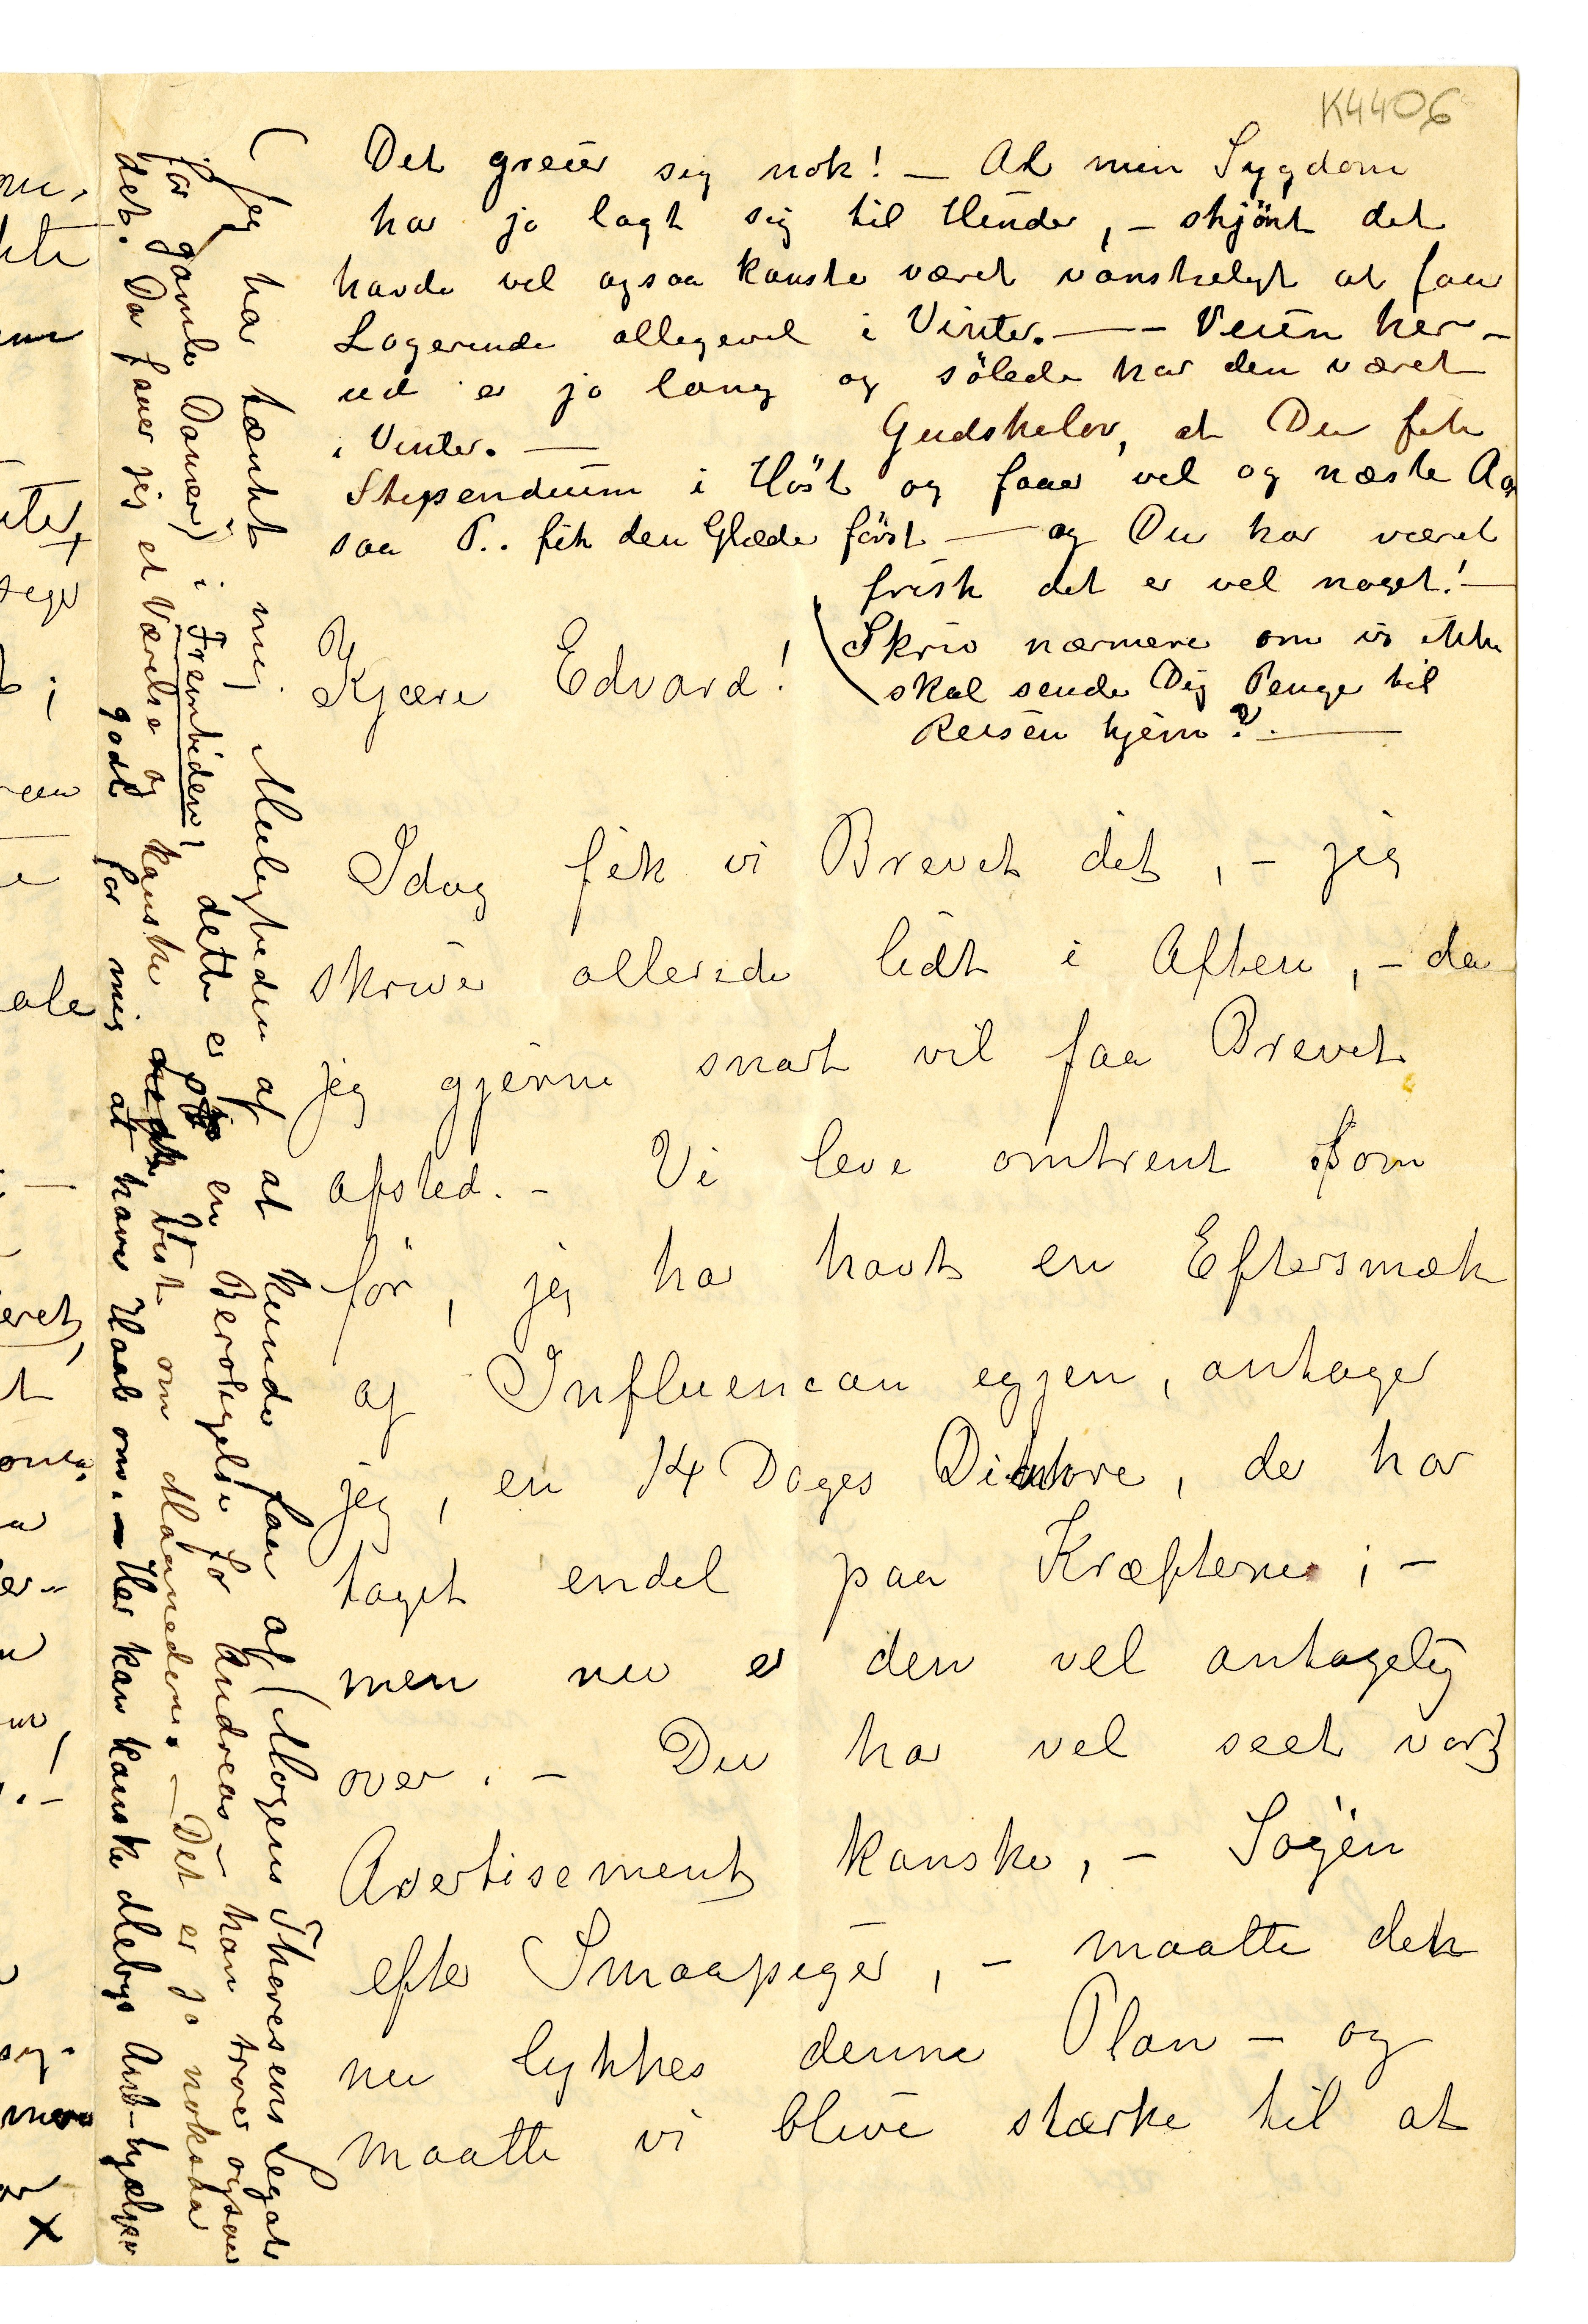 K4406
Det greier sig nok! – At min Sygdom
har jo lagt sig til Hinder, – skjönt det
havde vel ogsaa kanske været vanskeligt at faa
Logerende allegevel i Vinter. – – Veien her-
ud er jo lang og sölede har den været
i Vinter. –
Gudskelov, at Du fik
Stipendium i Höst og faaer vel og næste Aar
saa P.. fik den Glæde först – og Du har været
frisk det er vel noget! –
(Skriv nærmere om vi ikke
skal sende Dig Penge til
Reisen hjem?. –
Kjære Edvard!
Idag fik vi Brevet dit, – jeg
skriver allerede lidt i Aften, – da
jeg gjerne snart vil faa Brevet
afsted. – Vi leve omtrent som
för, jeg har havt en Eftersmæk
af Influencan egjen, antager
jeg, en 14 Dages Diahre, der har
taget endel paa Kræfterne; –
men nu er den vel antagelig
over. – Du har vel seet vort
Avertisement kanske, – Sögen
efter Smaapiger, – maatte den
nu lykkes denne Plan – og
maatte vi blive stærke til at
(Jeg har tænkt mig Muligheden af at kunde faa af (Mogens Thoresens Legat
for gamle Damer) i Fremtiden, dette er en Beroligelse for Andreas – han troer ogsaa
det. Da faaer jeg et Værelse og kanske vist om Maaneden. – Det er jo noksaa
godt for mig at have Haab om. – Her kan kanske Mebye Aml-hjælpe